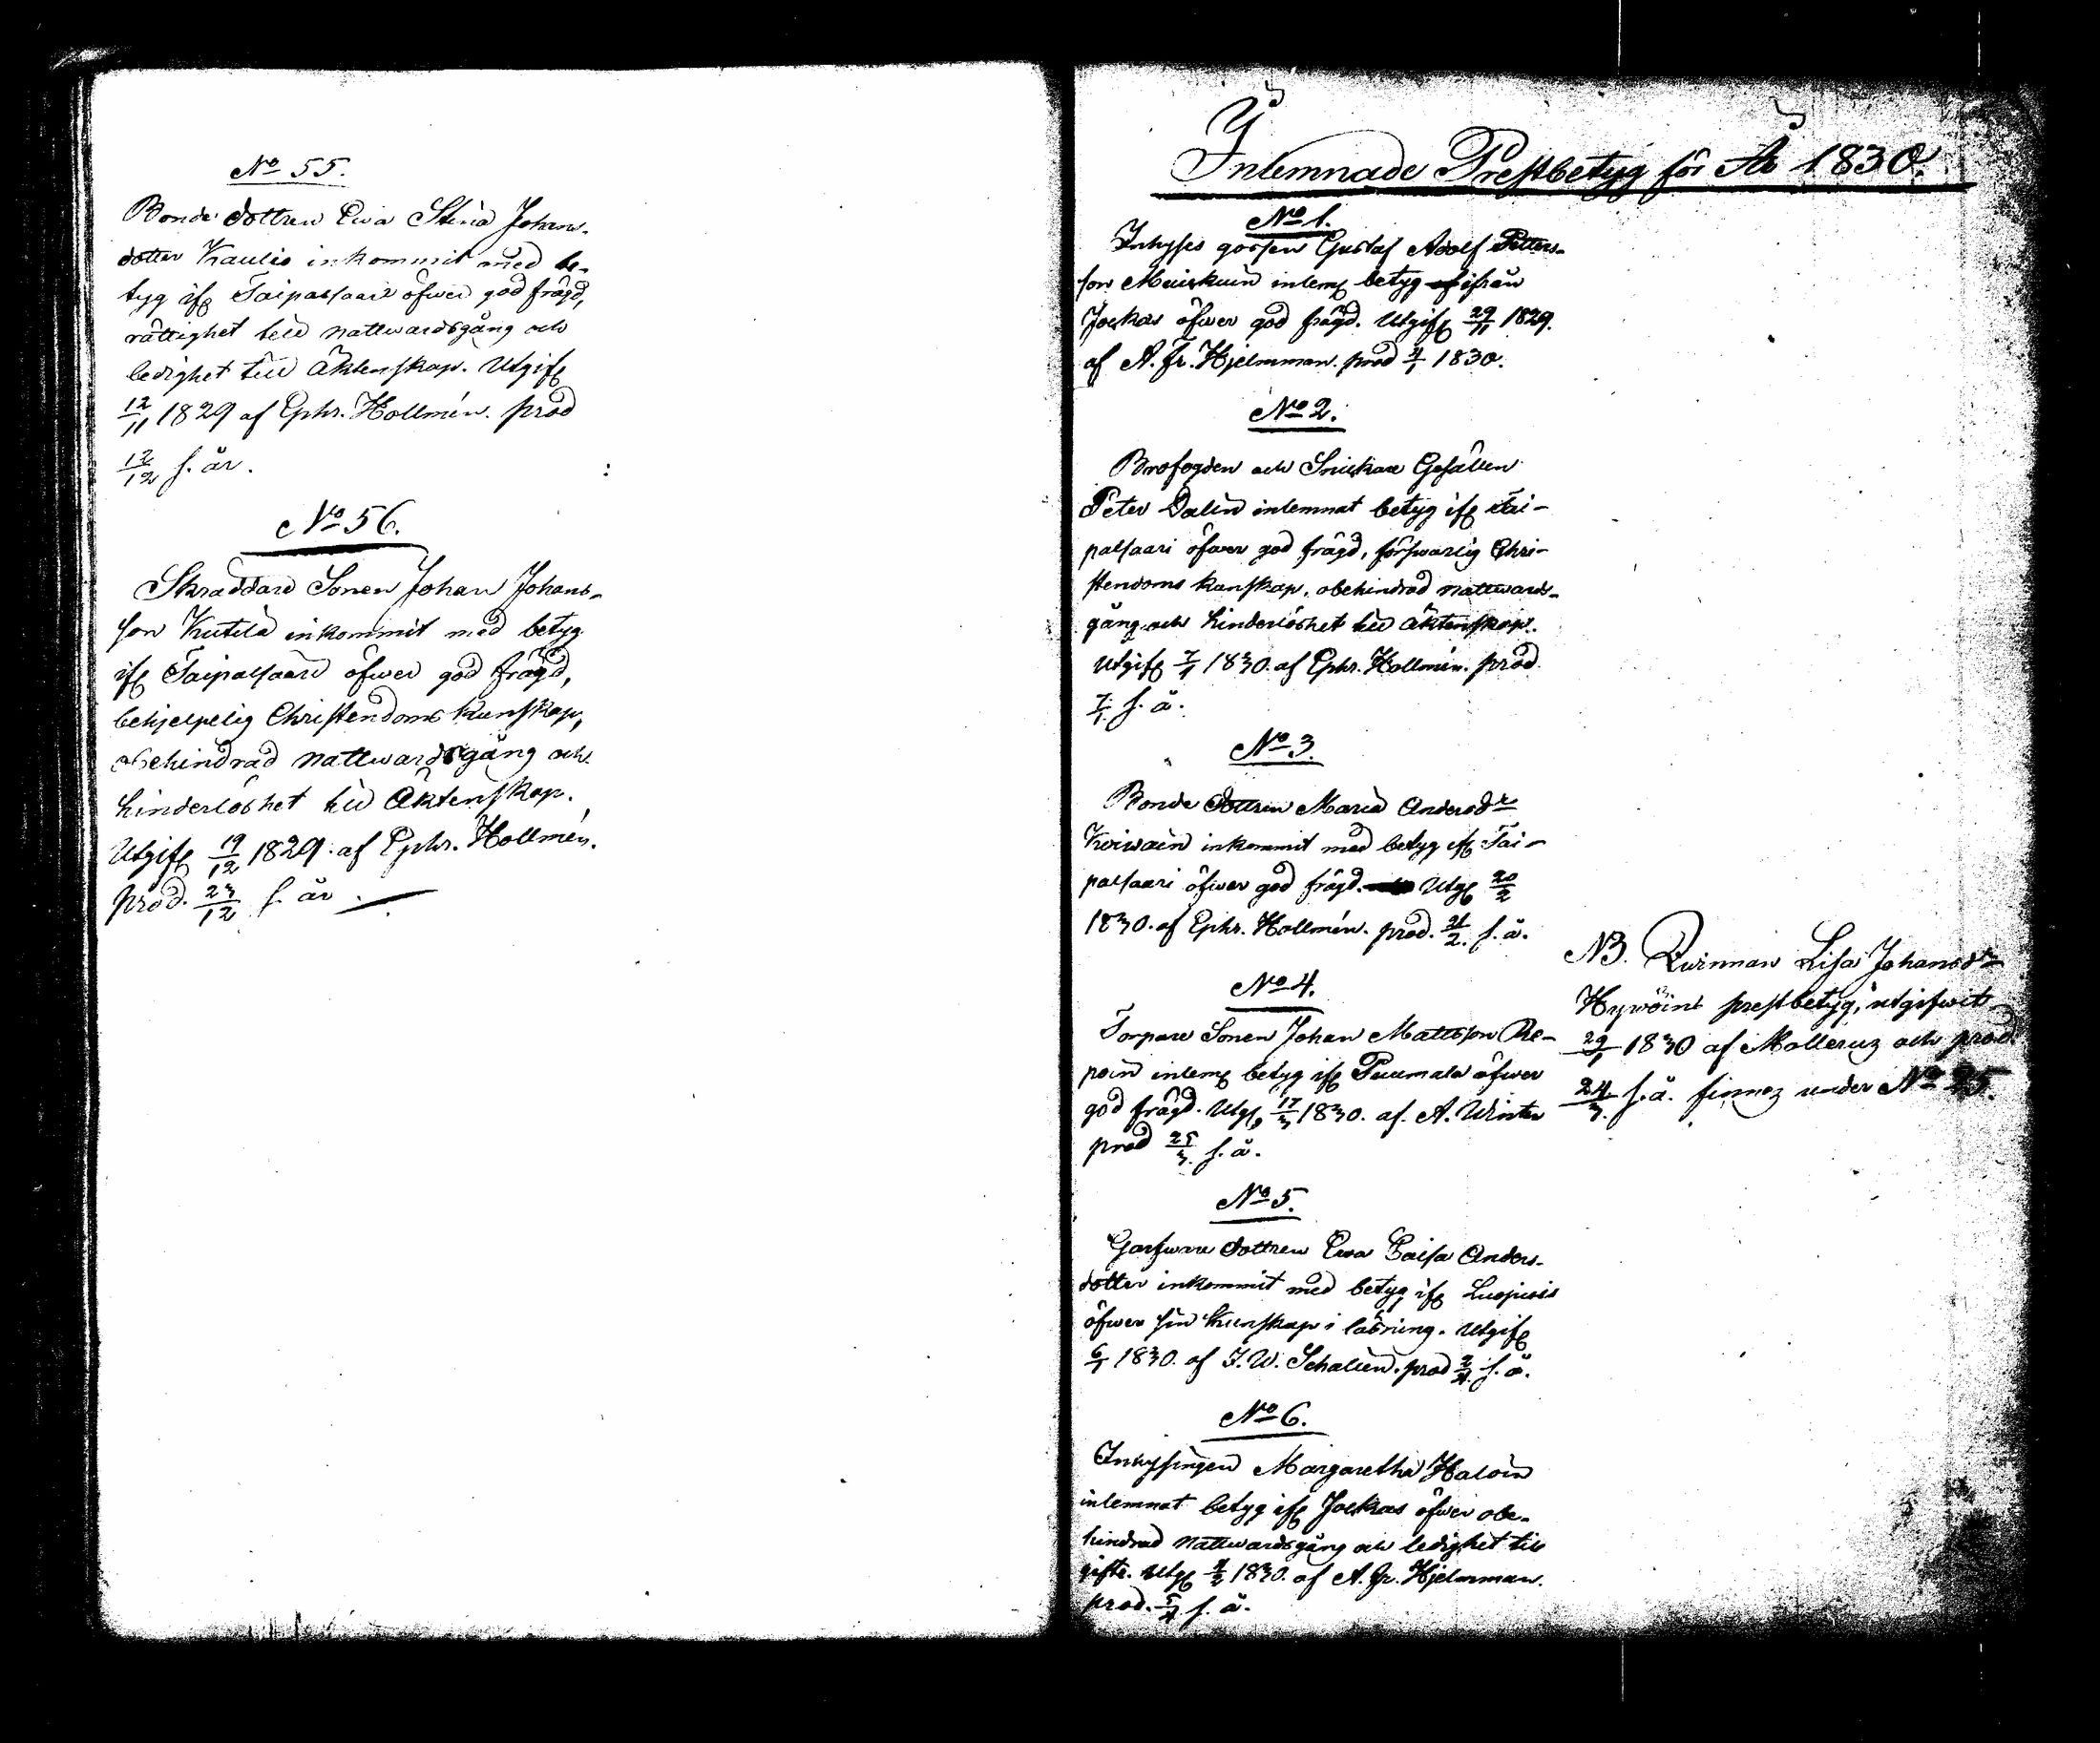 No 55.
Bonde dottren Ewa Stina Johans-
dotter Kaulio inkommit med be-
tyg ifr Taipalsaari öfwer god frägd,
rättighet till nattwardsgång och
ledighet till Äktenskap. Utgif
12/11 1829 af Ephr. Hollmén. prod
12/12 s. år.
No 56.
Skraddare Sonen Johan Johans-
son Kutila inkommit med betyg
ifr Taipalsaari öfwer god frägd,
behjelpelig Christendoms kunskap,
obehindrad nattwardsgång och
hinderlöshet till Äktenskap.
Utgif 19/12 1829. af Ephr. Hollmén.
prod. 23/12 s. år.
Inlemnade Prestbetyg för År 1830.
No 1.
Inhyses gossen Gustaf Adolf Petters-
son inlem betyg ifrån
Jockas öfwer god frägd. Utgif 29/11 1829.
af A. Fr. Hjelmman. prod 4/1 1830.
No 2.
Brofogden och Snickare Gesällen
Peter Dalin inlemnat betyg ifr Tai-
palsaari öfwer god frägd, förswarlig Chri-
stendoms kunskap, obehindrad nattwards-
gång och hinderlöshet till äktenskap.
Utgif 7/1 1830. af Ephr. Hollmén. prod.
7/1. s. å.
No 3.
Bonde dottren Maria Andersdr
Koiwain inkommit med betyg ifr Tai-
palsaari öfwer god frägd. Utg 20/2
1830. af Ephr. Hollmén. prod. 21/2. s. å.
No 4.
Torpare Sonen Johan Mattsson Re-
poin inlem betyg ifr Puumala öfwer
god frägd. Utg, 17/3 1830. af. A. Winter
prod 25/3. s. å.
No 5.
Garfware dottren Ewa Caisa Anders-
dotter inkommit med betyg ifr Luopiois
öfwer sin kunskap i läsning. Utgif
6/1 1830. af J. W. Schalien. prod 2/4. s. å.
No 6.
Inhysingen Margaretha Haloin
inlemnat betyg ifr Jockas öfwer obe-
hindrad nattwardsgång och ledighet till
gifte. Utg 4/2 1830. af A. Fr. Hjelmman.
prod. 5/4 s. å.
NB. Qwinnan Lisa Johansdr
Hywöins prestbetyg, utgifwit
29/1 1830 af Molleruz och prod.
24/3. s. å. finnez under No 25.